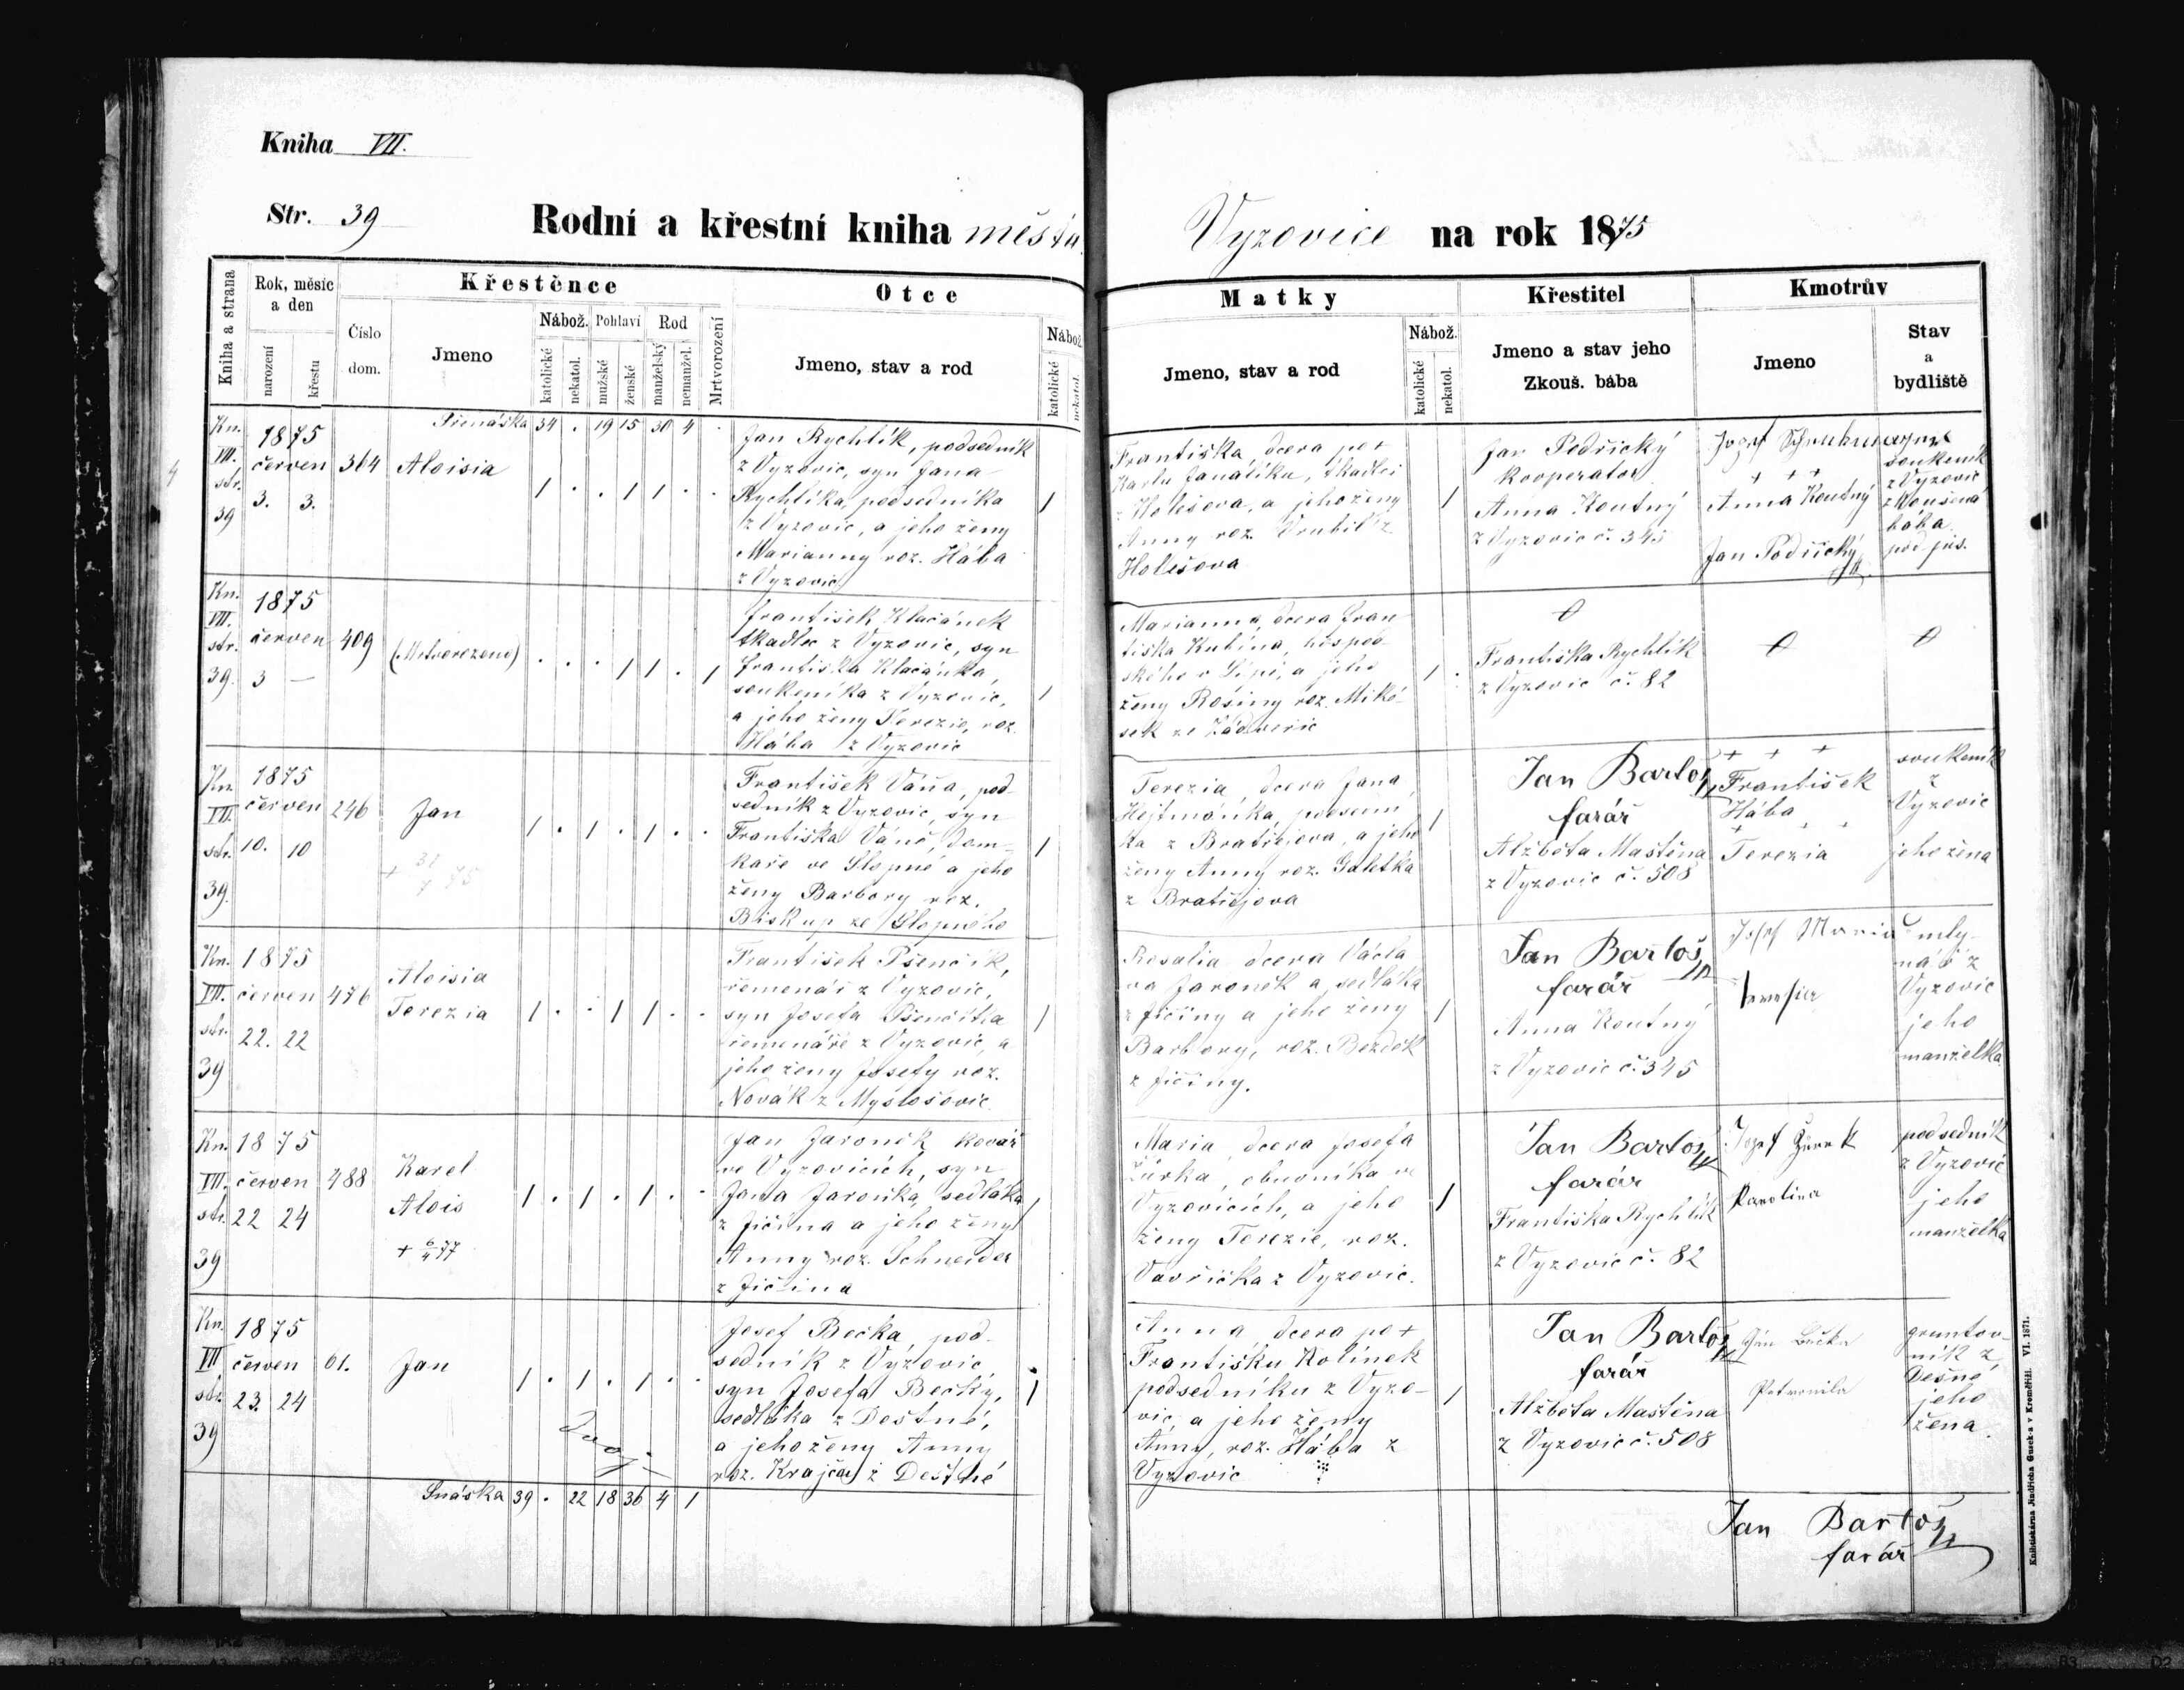 Kniha VII.
Str. 39
Rodní a křestní kniha města
Vyzovice na rok 1875
Kniha a strana
Rok, měsíc a den
narození
křestu
Křestěnce
Číslo dom.
Jmeno
Nábož.
katolické
nekatol.
Pohlaví
mužské
ženské
Rod
manželský
nemanžel.
Mrtvorození
Otce
Jmeno, stav a rod
Nábož.
katolické
nekatol.
Matky
Jmeno, stav a rod
Nábož.
katolické
nekatol.
Křestitel
Jmeno a stav jeho
Zkouš. bába
Kmotrův
Jmeno
Stav
a
bydliště
Přenáška 34 . 19 15 30 4 .
Kn.
VII.
str.
39
1875
červen
3. 3.
364
Aloisia
1 . . 1 1 . .
Jan Rychlík, podsedník
z Vyzovic, syn Jana
Rychlíka, podsedníka
z Vyzovic, a jeho ženy
Marianny roz. Hába
z Vyzovic
1
Františka, dcera po +
Karlu Janalíku, tkadlci
z Holešova, a jeho ženy
Anny roz. Vrubil z
Holešova
1
Jan Podřický
kooperator
Anna Koutný
z Vyzovic č. 345
Josef
+ + +
Anna Koutný
Jan Podřický
soukeník
z Vyzovic
zkoušená
bába
pod. jus.
Kn.
VII.
str.
39.
1875
červen
3 —
409
(Mrtvorozeno)
. . . 1 1 . 1
František Klačánek
tkadlec z Vyzovic, syn
Františka Klačánka,
soukeníka z Vyzovic,
a jeho ženy Terezie, roz.
Hába z Vyzovic
1
Marianna, dcera Fran
tiška Kubína, hospod
ského v Lípě, a jeho
ženy Rosiny roz. Miké-
sek ze Zádveřic
1 .
Františka Rychlík
z Vyzovic č. 82
Kn.
VII.
str.
39.
1875
červen
10. 10
246
Jan
+ 31/7 75
1 . 1 . 1 . .
František Váňa, pod-
sedník z Vyzovic, syn
Františka Váně, dom-
kaře ve Slopné a jeho
ženy Barbory roz.
Biskup ze Slopného
1
Terezia, dcera Jana
Hejtmánka,
ka z Bratřejova, a jeho
ženy Anny roz. Galetka
z Bratřejova
1
Jan Bartoš
farář
Alžběta Maštěna
z Vyzovic č. 508
+ + +
František
Hába
+ + +
Terezia
soukeník
z
Vyzovic
jeho žena
Kn.
VII.
str.
39
1875
červen
22. 22
476
Aloisia
Terezia
1 . . 1 1 . .
František Pšenčík,
řemenář z Vyzovic,
syn Josefa Pšenčíka
řemenáře z Vyzovic, a
jeho ženy Josefy roz.
Novák z Myslošovic
1
Rosalia, dcera Václa
va Jaroněk a, sedláka
z Jičiny a jeho ženy
Barbory, roz. Bezděk
z Jičiny.
1
Jan Bartoš
farář
Anna Koutný
z Vyzovic č. 345
Josef
mly-
nář z
Vyzovic
jeho
manželka
Kn.
VII.
str.
39
1875
červen
22 24
488
Karel
Alois
+ 6/4 77
1 . 1 . 1 . .
Jan Jaroněk kovář
ve Vyzovicích, syn
Jana Jaroňka, sedláka
z Jičína a jeho ženy
Anny roz. Schneider
z Jičína
1
Maria, dcera Josefa
Žůrka, obuvníka ve
Vyzovicích, a jeho
ženy Terezie, roz.
Vavřička z Vyzovic.
1
Jan Bartoš
farář
Františka Rychlík
z Vyzovic č. 82
Josef Žůrek
Karolina
podsedník
z Vyzovic
jeho
manželka
Kn.
VII
str.
39
1875
červen
23. 24
61.
Jan
1 . 1 . 1 . .
Josef Bečka, pod-
sedník z Vyzovic
syn Josefa Bečky,
sedláka z Deštné,
a jeho ženy Anny
roz. Krajča z Deštné
1
Anna, dcera po +
Františku Kolínek
podsedníku z Vyzo-
vic, a jeho ženy
Anny, roz. Hába z
Vyzovic
1
Jan Bartoš
farář
Alžběta Maštěna
z Vyzovic č. 508
Jan Bečka
Petronila
gruntov-
ník z
Dešné
jeho
žena.
Snáška 39 . 22 18 36 4 1
Jan Bartoš
farář
Knihtiskárna Jindřicha Gusek-a v Kroměříži. VI. 1871.